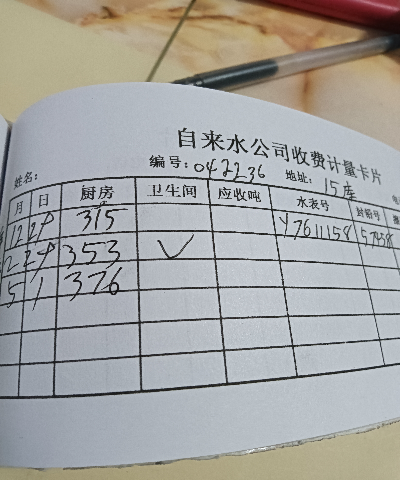 自来水公司收费计量卡片
姓名: 编号: 042236 地址: 15库
月 日 厨房 卫生间 应收吨 水表号 封铅号
12 29 315 Y7611158
2 29 353 ✓
5 1 376